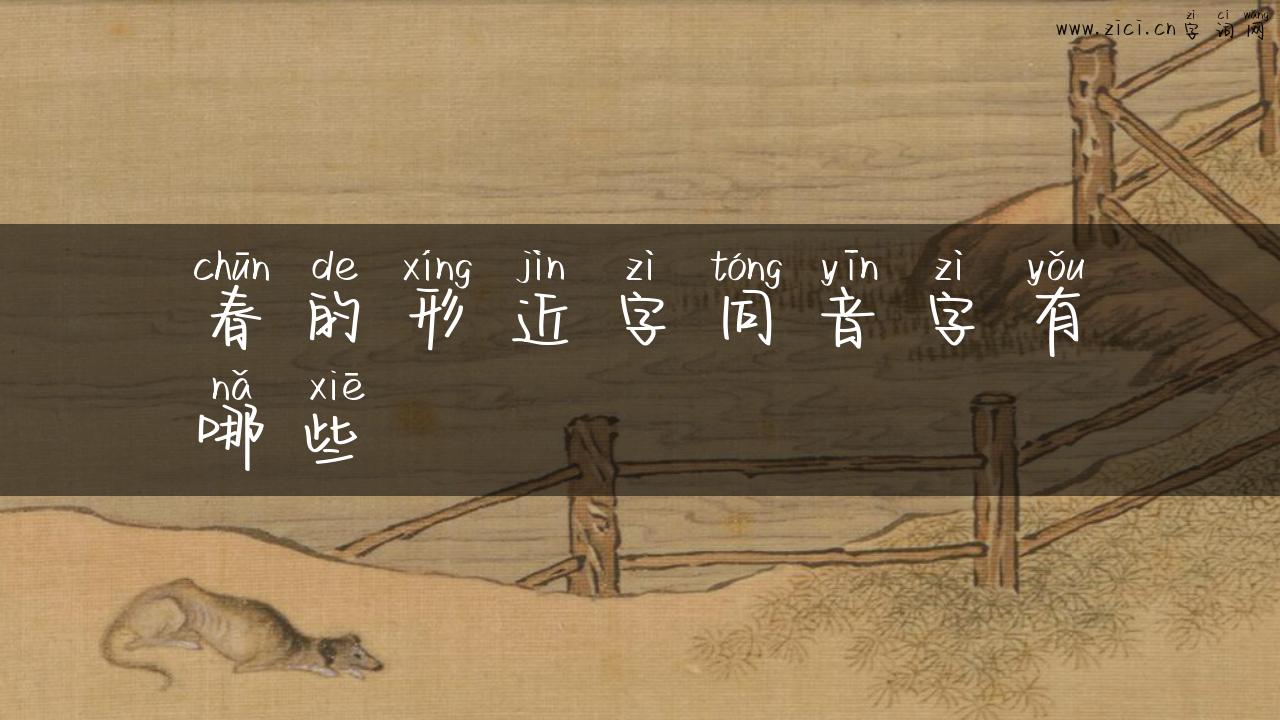 zì cí wǎng
www.zici.cn 字词网
chūn de xíng jìn zì tóng yīn zì yǒu
春的形近字同音字有
nǎ xiē
哪些